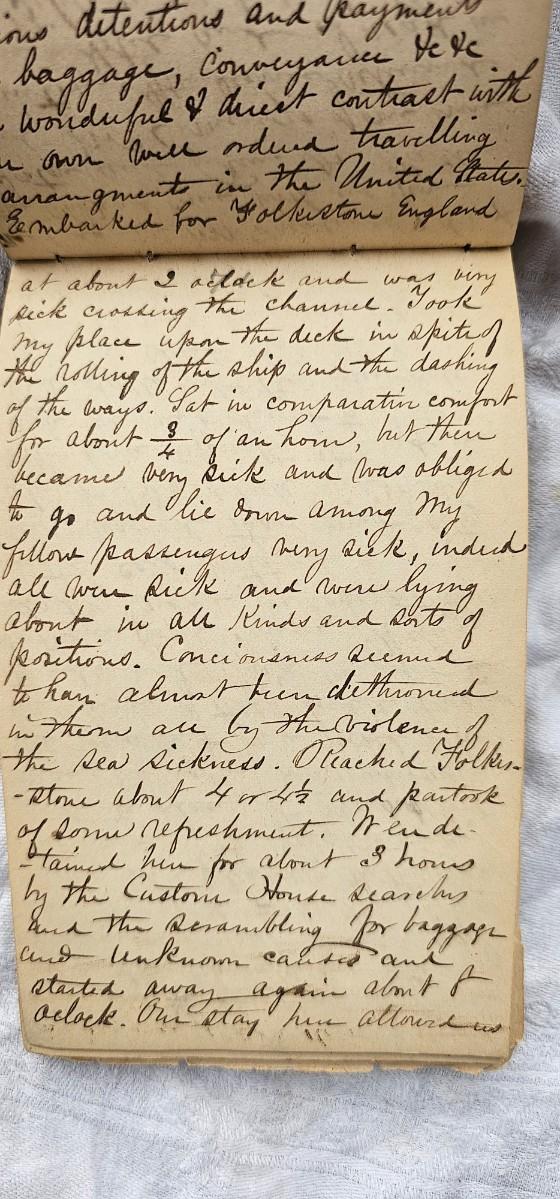 ious detentions and payments
baggage, conveyance &c &c
wonderful & direct contrast with
own well ordered travelling
arrangments in the United States.
Eembarked for Folkestone England
at about 2 oclock and was very
sick crossing the channel. Took
my place upon the deck in spite of
the rolling of the ship and the dashing
of the ways. Sat in comparativ comfort
for about 3/4 of an hour, but then
became very sick and was obliged
to go and lie down among my
fellow passengers very sick, indeed
all were sick and were lying
about in all Kinds and sorts of
positions. Conciousness seemed
to have almost been dethroned
in them all by the violence of
the sea sickness. Reached Folkes-
-stone about 4 or 4½ and partook
of some refreshment. Were de-
-tained here for about 3 hours
by the Custom House searches
and the scrambling for baggage
and unknown causes and
started away again about 8
oclock. Our stay here allowed us